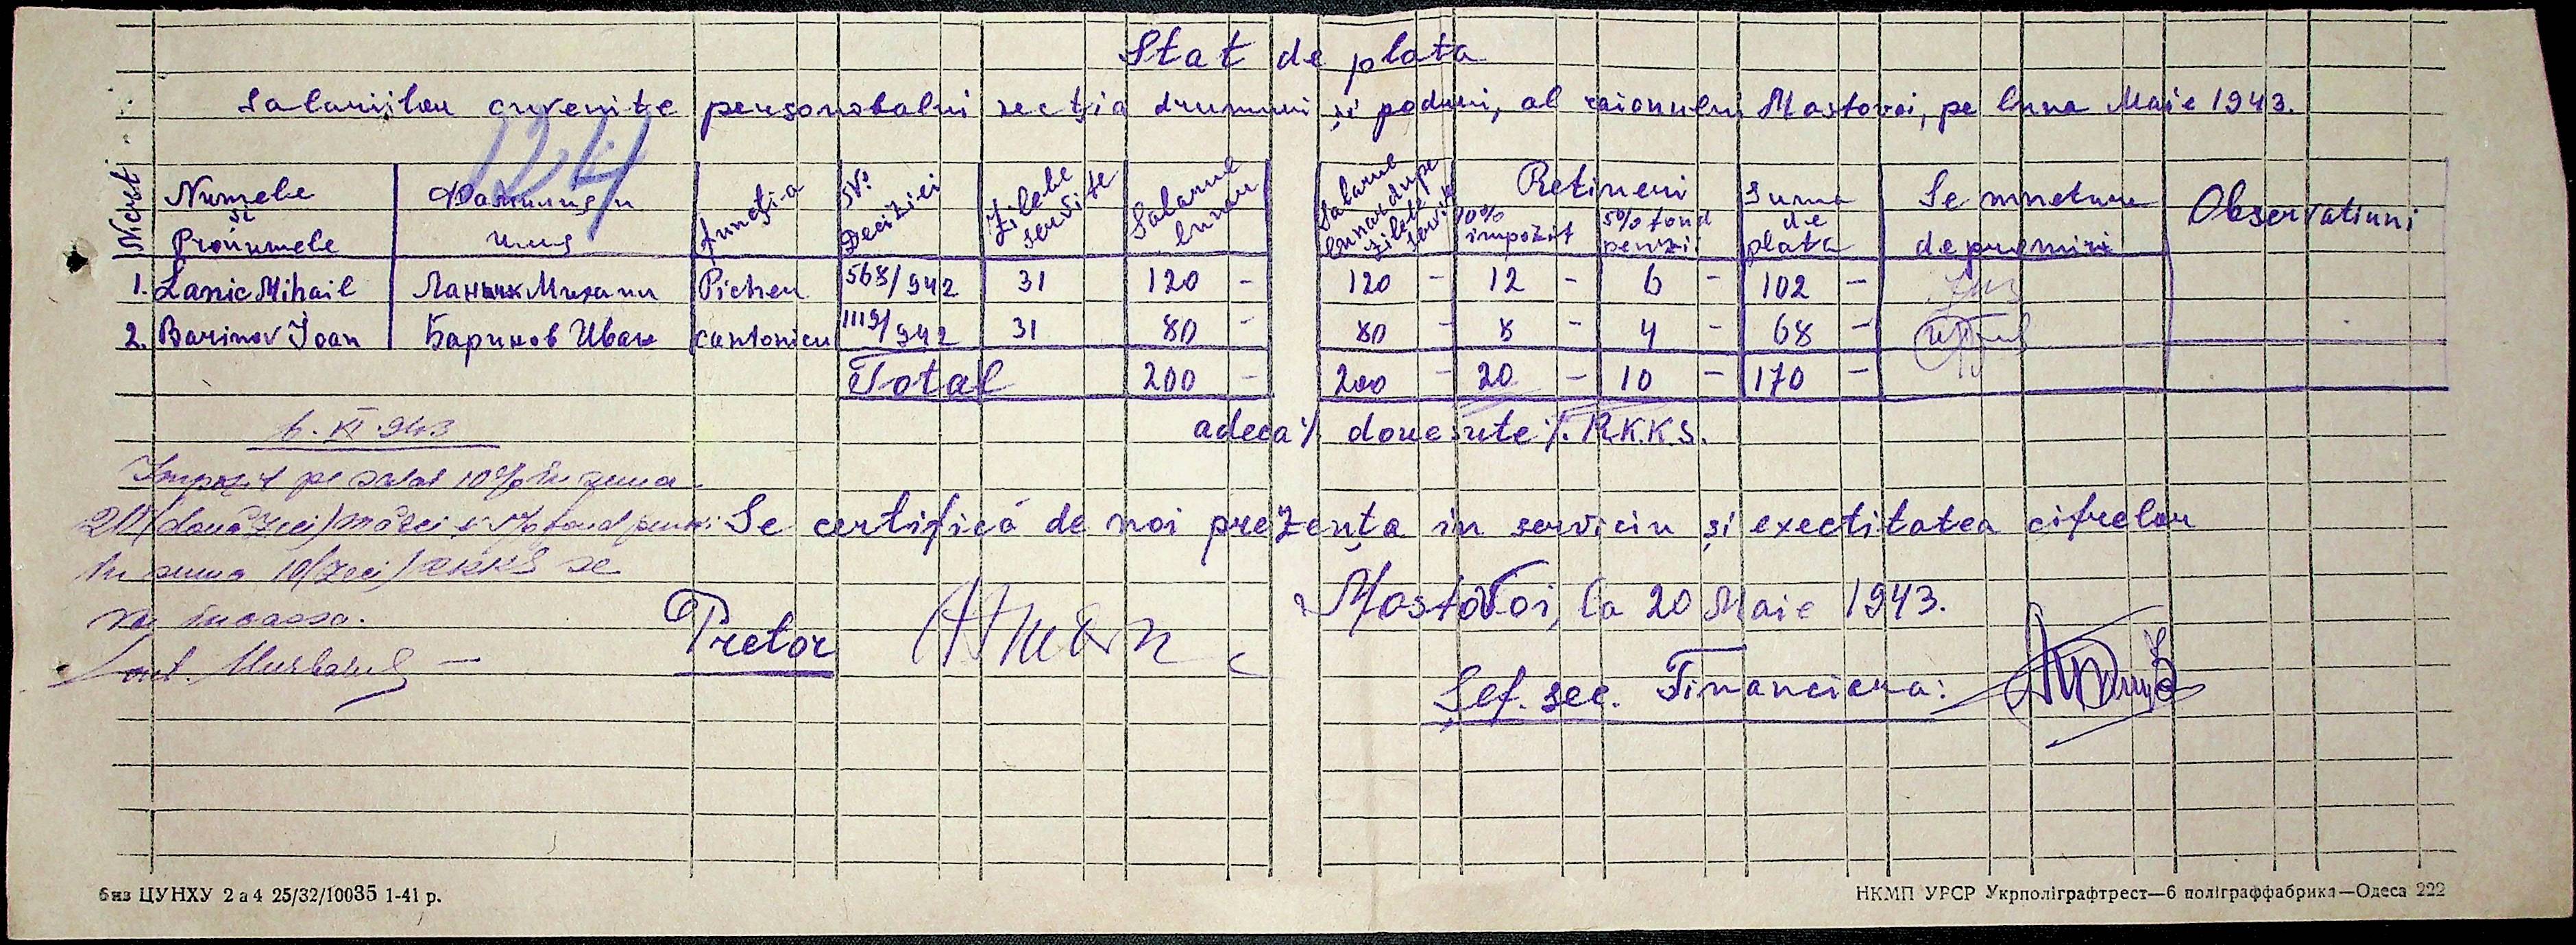 Stat de plata
salariilor cuvenite personalului secția drumuri și poduri, al raionului Mostovoi, pe luna Maie 1943.
124
Nr crt Numele și Pronumele Фамилия имя funcția № Deciziei Zilele servite Salarul lunar Salarul lunar dupe zilele servite Retineri 10% impozit 5% fond penzii Suma de plata Se mnetura de primiri Observatiuni
1. Lanic Mihail Ланчик Михаил Picher 568/942 31 120 - 120 - 12 - 6 - 102 -
2. Barinov Ioan Баринов Иван cantonier 1119/942 31 80 - 80 - 8 - 4 - 68 -
Total 200 - 200 - 20 - 10 - 170 -
adeca % doue sute % R.K.K.S.
6. XI. 943
Impozit pe salar 10% în suma
20 (două zeci) mărci și 5% fond penzii
în suma 10 (zeci) RKKS se
va incassa.
Se certifică de noi prezența in serviciu și exectitatea cifrelor
Mostovoi, la 20 Maie 1943.
Pretor
Șef. sec. Financiera:
бнз ЦУНХУ 2 а 4 25/32/10035 1-41 р.
НКМП УРСР Укрполіграфтрест—6 поліграффабрика—Одеса 222